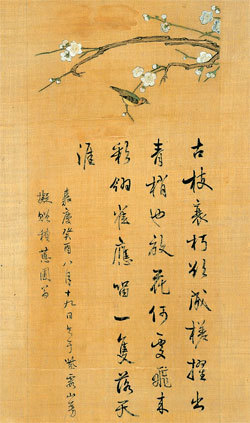 古枝衰朽欲成槎擢出
青梢也放花何處飛來
彩翎雀應留一隻落天
涯
嘉慶癸酉八月十九日書于紫霞山房
擬贈種蕙圃翁